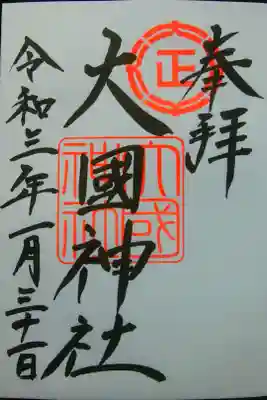 奉拝
正
大國神社
大國神社
令和三年一月三十一日